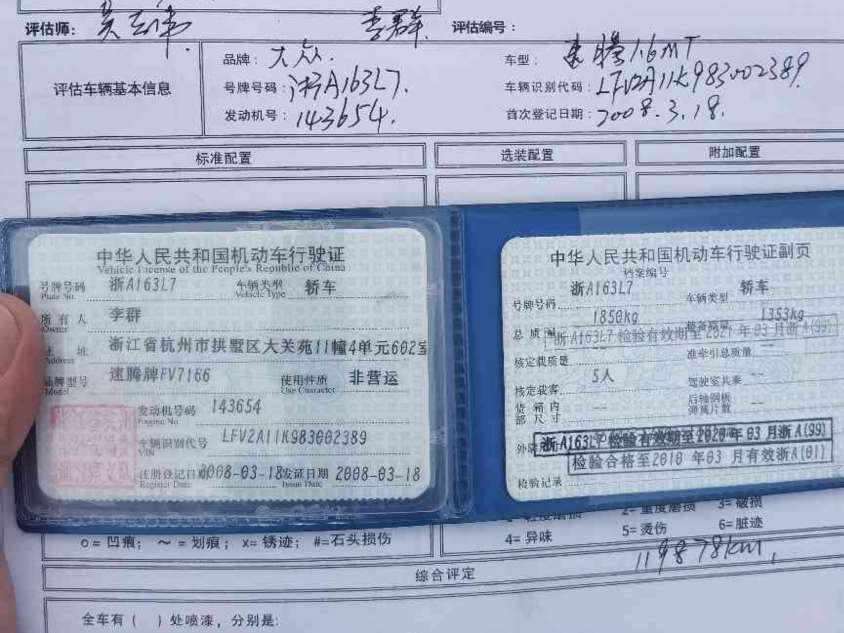 评估师: 李群 评估编号:
评估车辆基本信息
品牌: 大众. 车型: 速腾1.6MT
号牌号码: 浙A163L7. 车辆识别代码: LFV2A11K983002389.
发动机号: 143654. 首次登记日期: 2008.3.18.
标准配置 选装配置 附加配置
中华人民共和国机动车行驶证
Vehicle License of the People's Republic of China
号牌号码 浙A163L7 车辆类型 轿车
Plate No. Vehicle Type
所有人 李群
Owner
住址 浙江省杭州市拱墅区大关苑11幢4单元602室
Address
品牌型号 速腾牌FV7166 使用性质 非营运
Model Use Character
发动机号码 143654
Engine No.
车辆识别代号 LFV2A11K983002389
VIN
注册登记日期 2008-03-18 发证日期 2008-03-18
Register Date Issue Date
中华人民共和国机动车行驶证副页
档案编号
号牌号码 浙A163L7 车辆类型 轿车
总质量 1850kg 1353kg
浙A163L7检验有效期至2021年03月浙A(99)
核定载质量 -- 准牵引总质量 --
核定载客 5人 驾驶室共乘 --
货箱内部尺寸 -- 后轴钢板弹簧片数 --
浙A163L7检验有效期至2020年03月浙A(99)
检验合格至2010年03月有效浙A(01)
检验记录
4=异味 5=烫伤 6=脏迹
3=破损
o=凹痕; ～=划痕; x=锈迹; #=石头损伤
119878km,
综合评定
全车有（ ）处喷漆，分别是: